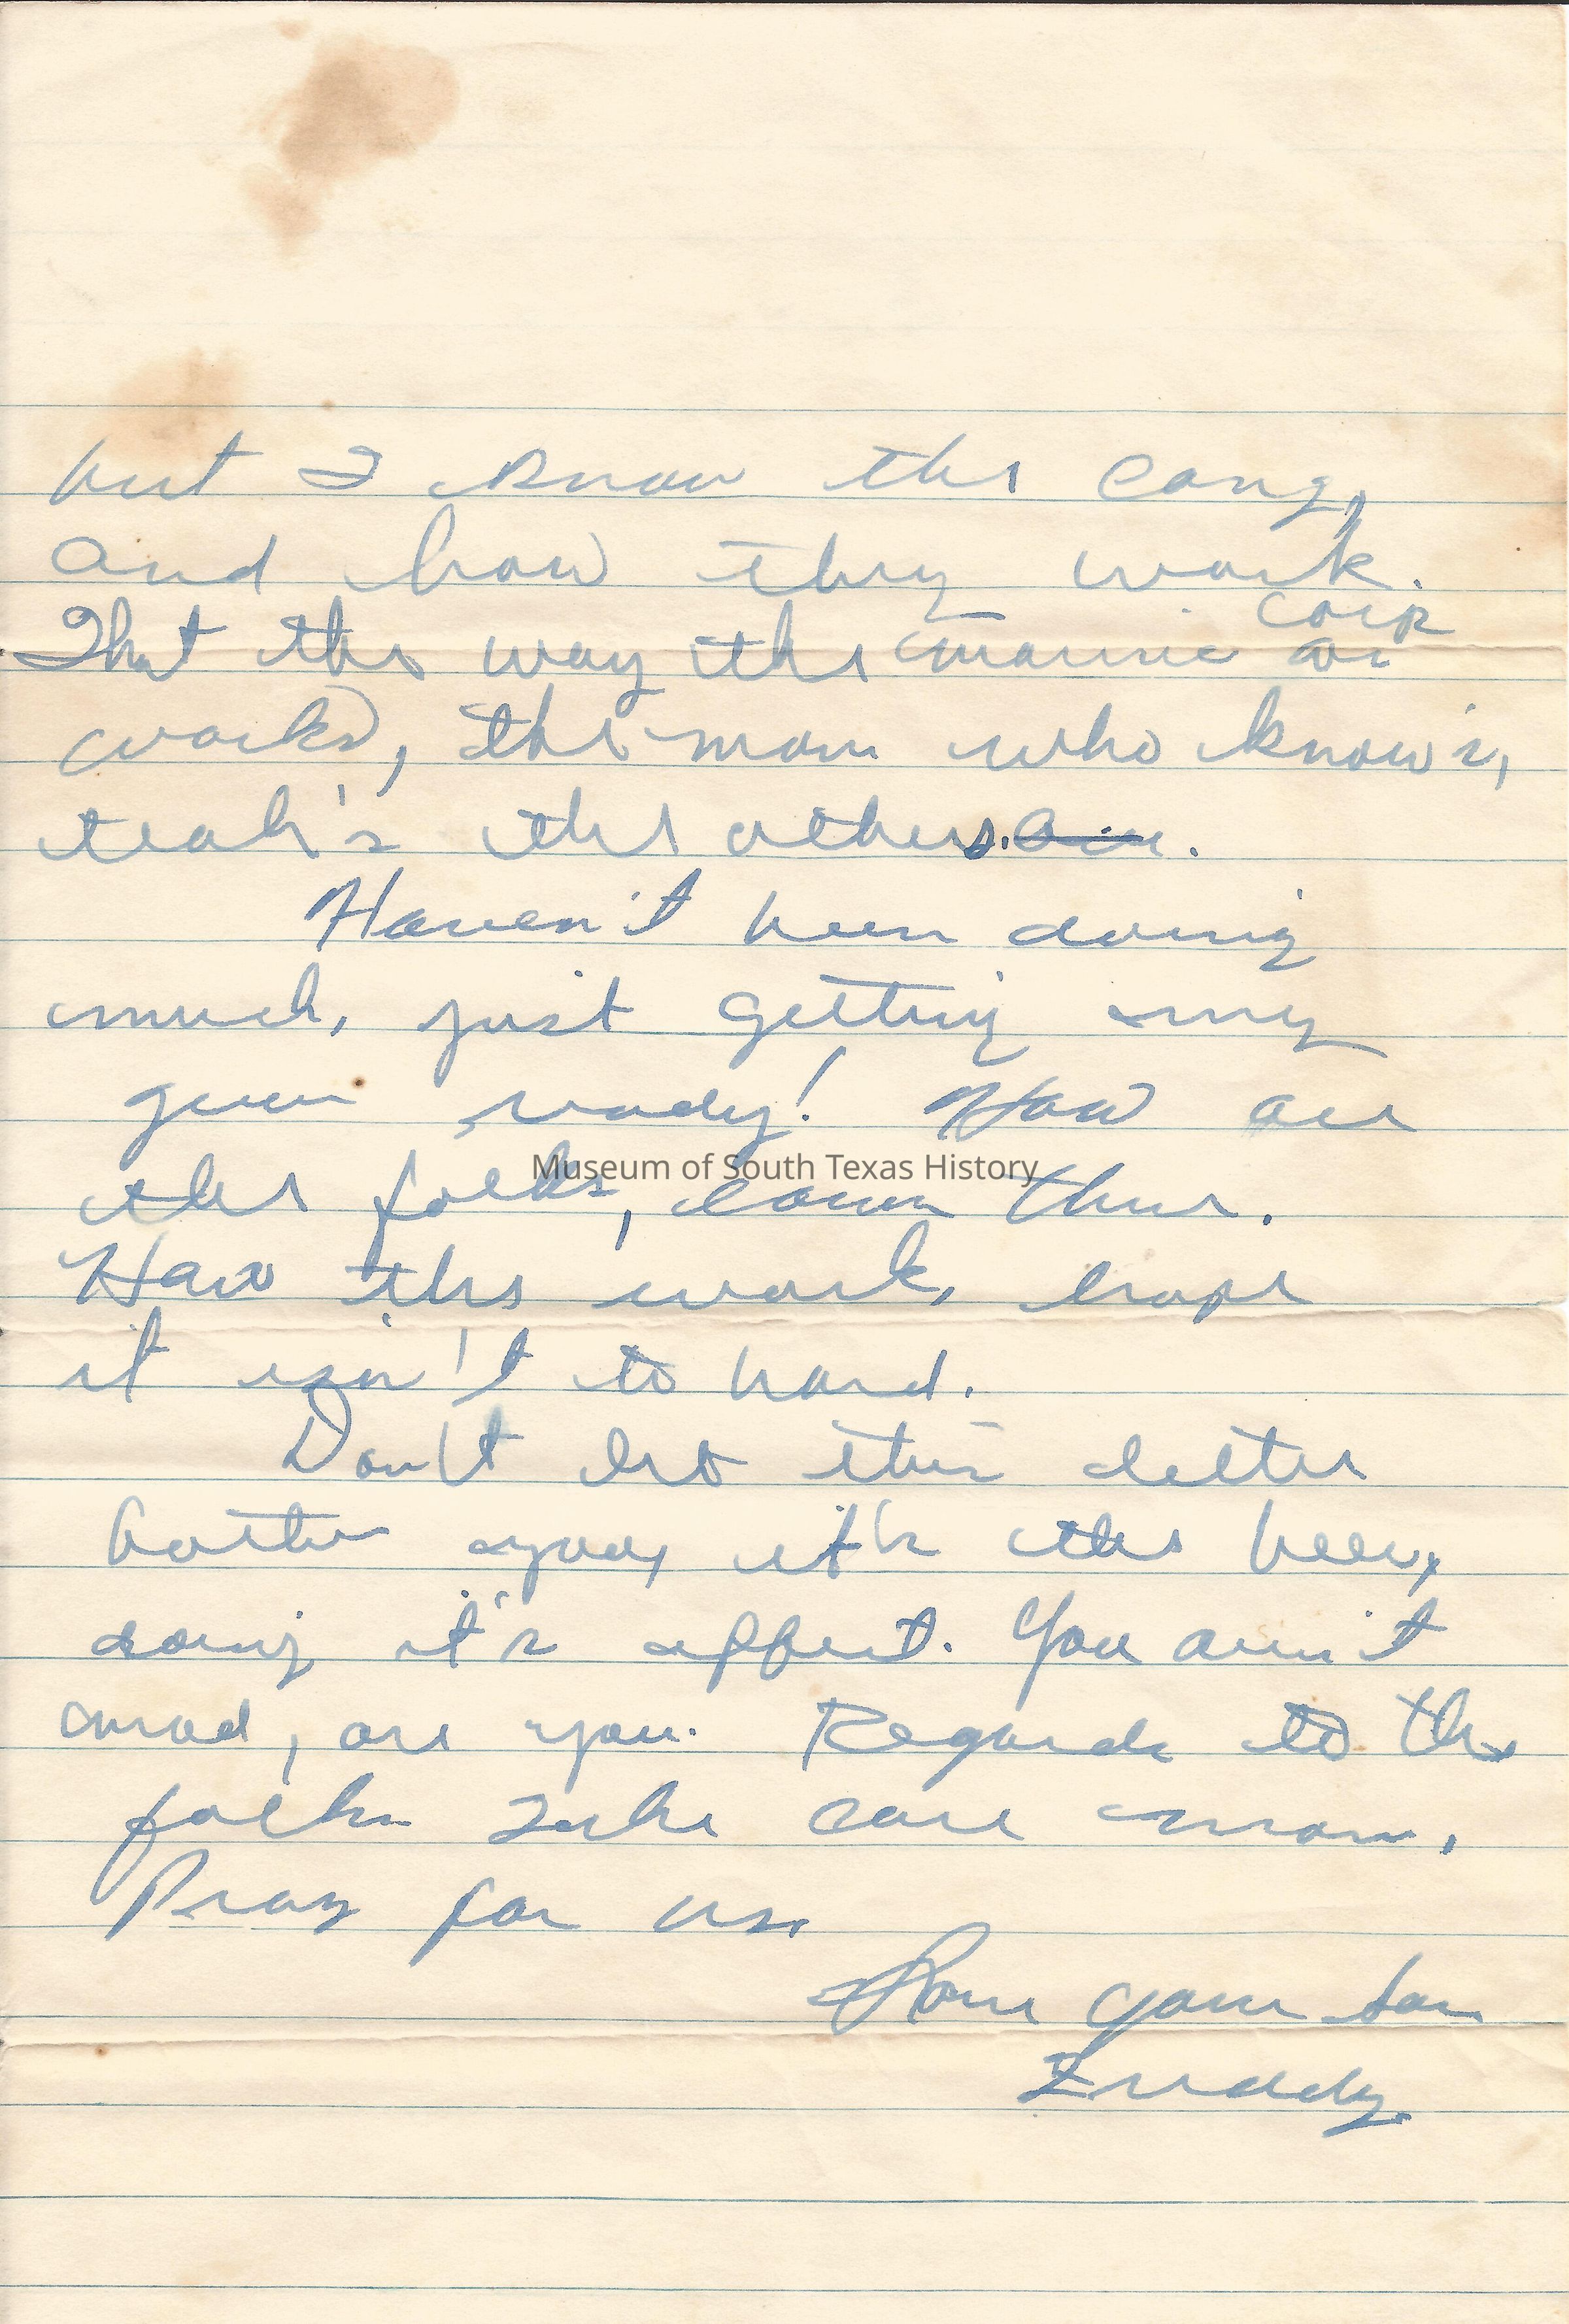 but I know the cong,
and how they work.
That the way the marine corp
works, the man who know's,
teah's the others.
Haven't been doing
much, just getting my
gun ready! How are
the folks, down there.
How the work, hope
it isn't to hard.
Don't let this letter
bother you, it's the beer,
doing it's effect. You ain't
mad, are you. Regards to the
folks Take care mom.
Pray for us.
Love your son
Freddy.
Museum of South Texas History